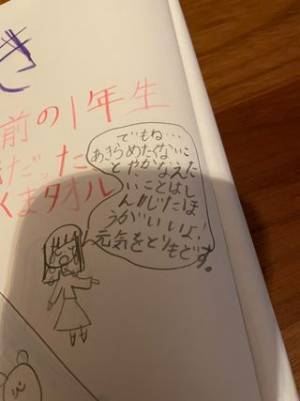 き
前の1年生
だった
くまタオル
でもね…
あきらめたくないこ
とやかなえた
いことはし
んじたほ
うがいいよ!
元気をとりもどす。